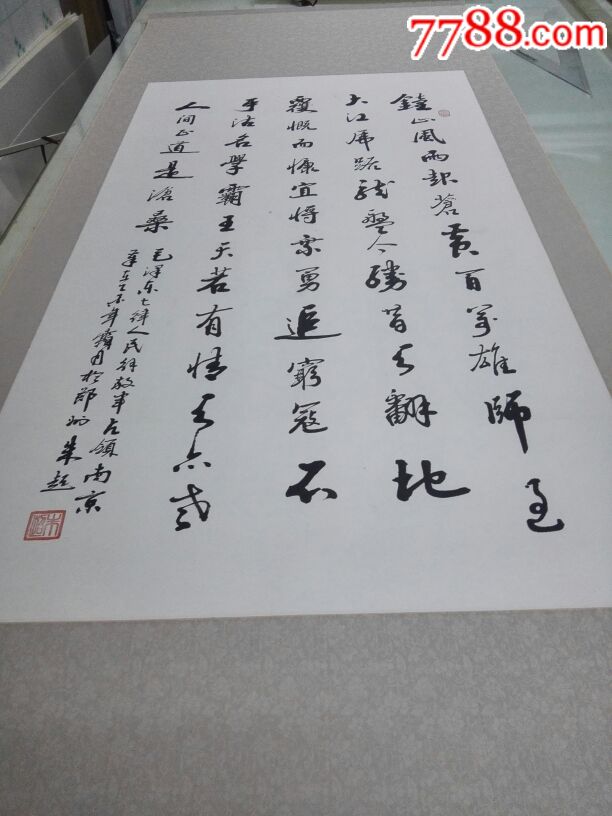 7788.com
鐘山風雨起蒼黄百萬雄師過
大江虎踞龍盤今勝昔天翻地
覆慨而慷宜將剩勇追窮寇不
可沽名學霸王天若有情天亦老
人間正道是滄桑
毛澤东七律人民解放軍占領南京
歲在年月於朱